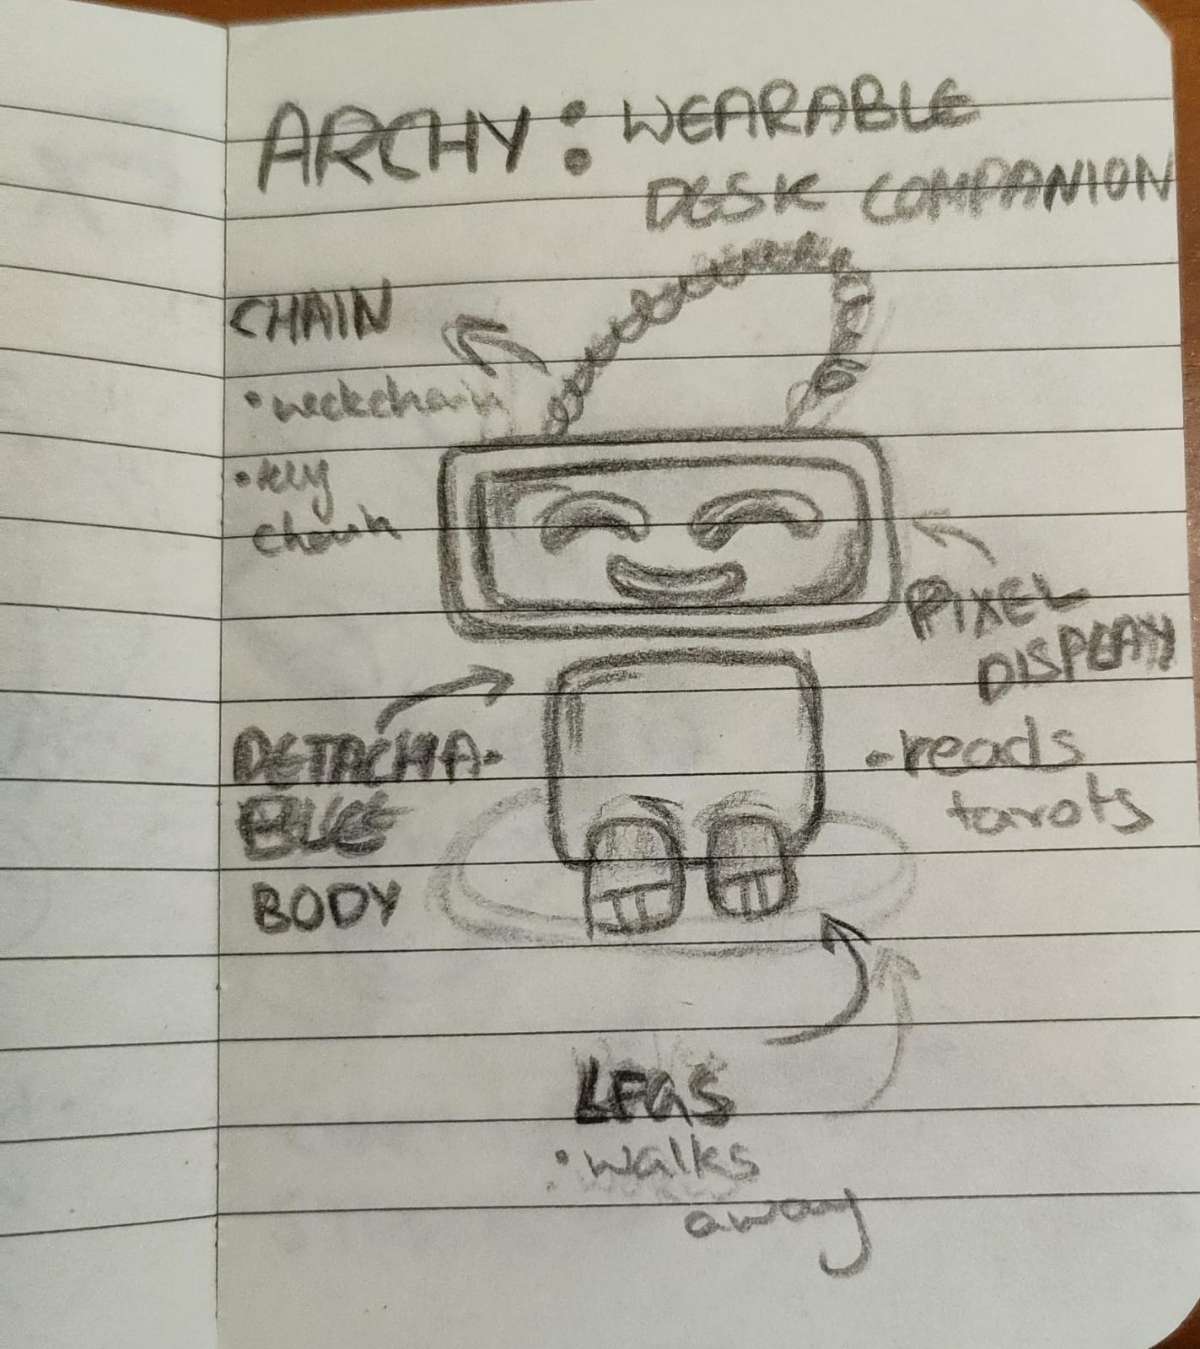 ARCHY: WEARABLE
DESK COMPANION
CHAIN
• neckchain
• key
chain
PIXEL
DISPLAY
- reads
tarots
DETACHA-
BLE
BODY
LEGS
• walks
away